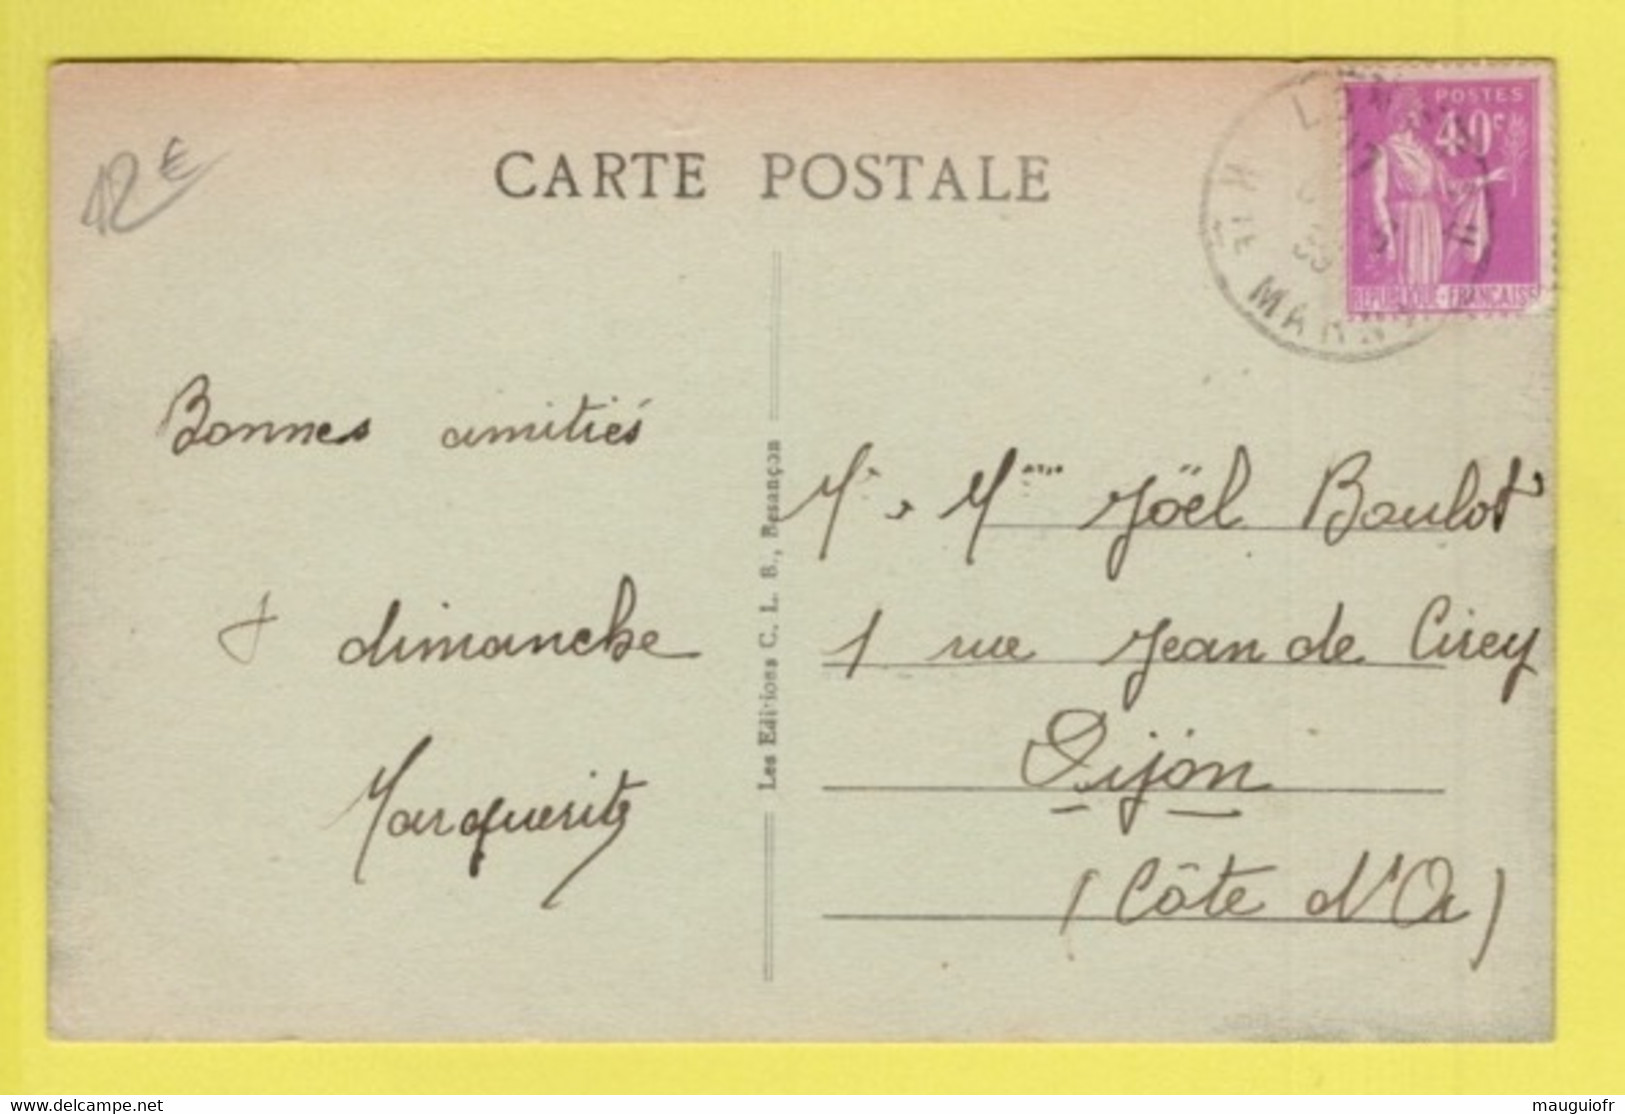 CARTE POSTALE
12€
POSTES
40c
REPUBLIQUE-FRANÇAISE
Hte MARNE
Bonnes amitiés
+ dimanche
Marguerite
Les Editions C. L. B., Besançon
Mr. Mme Joël Boulot
1 rue Jean de Cirey
Dijon
(Côte d'Or)
delcampe.net
mauguiofr